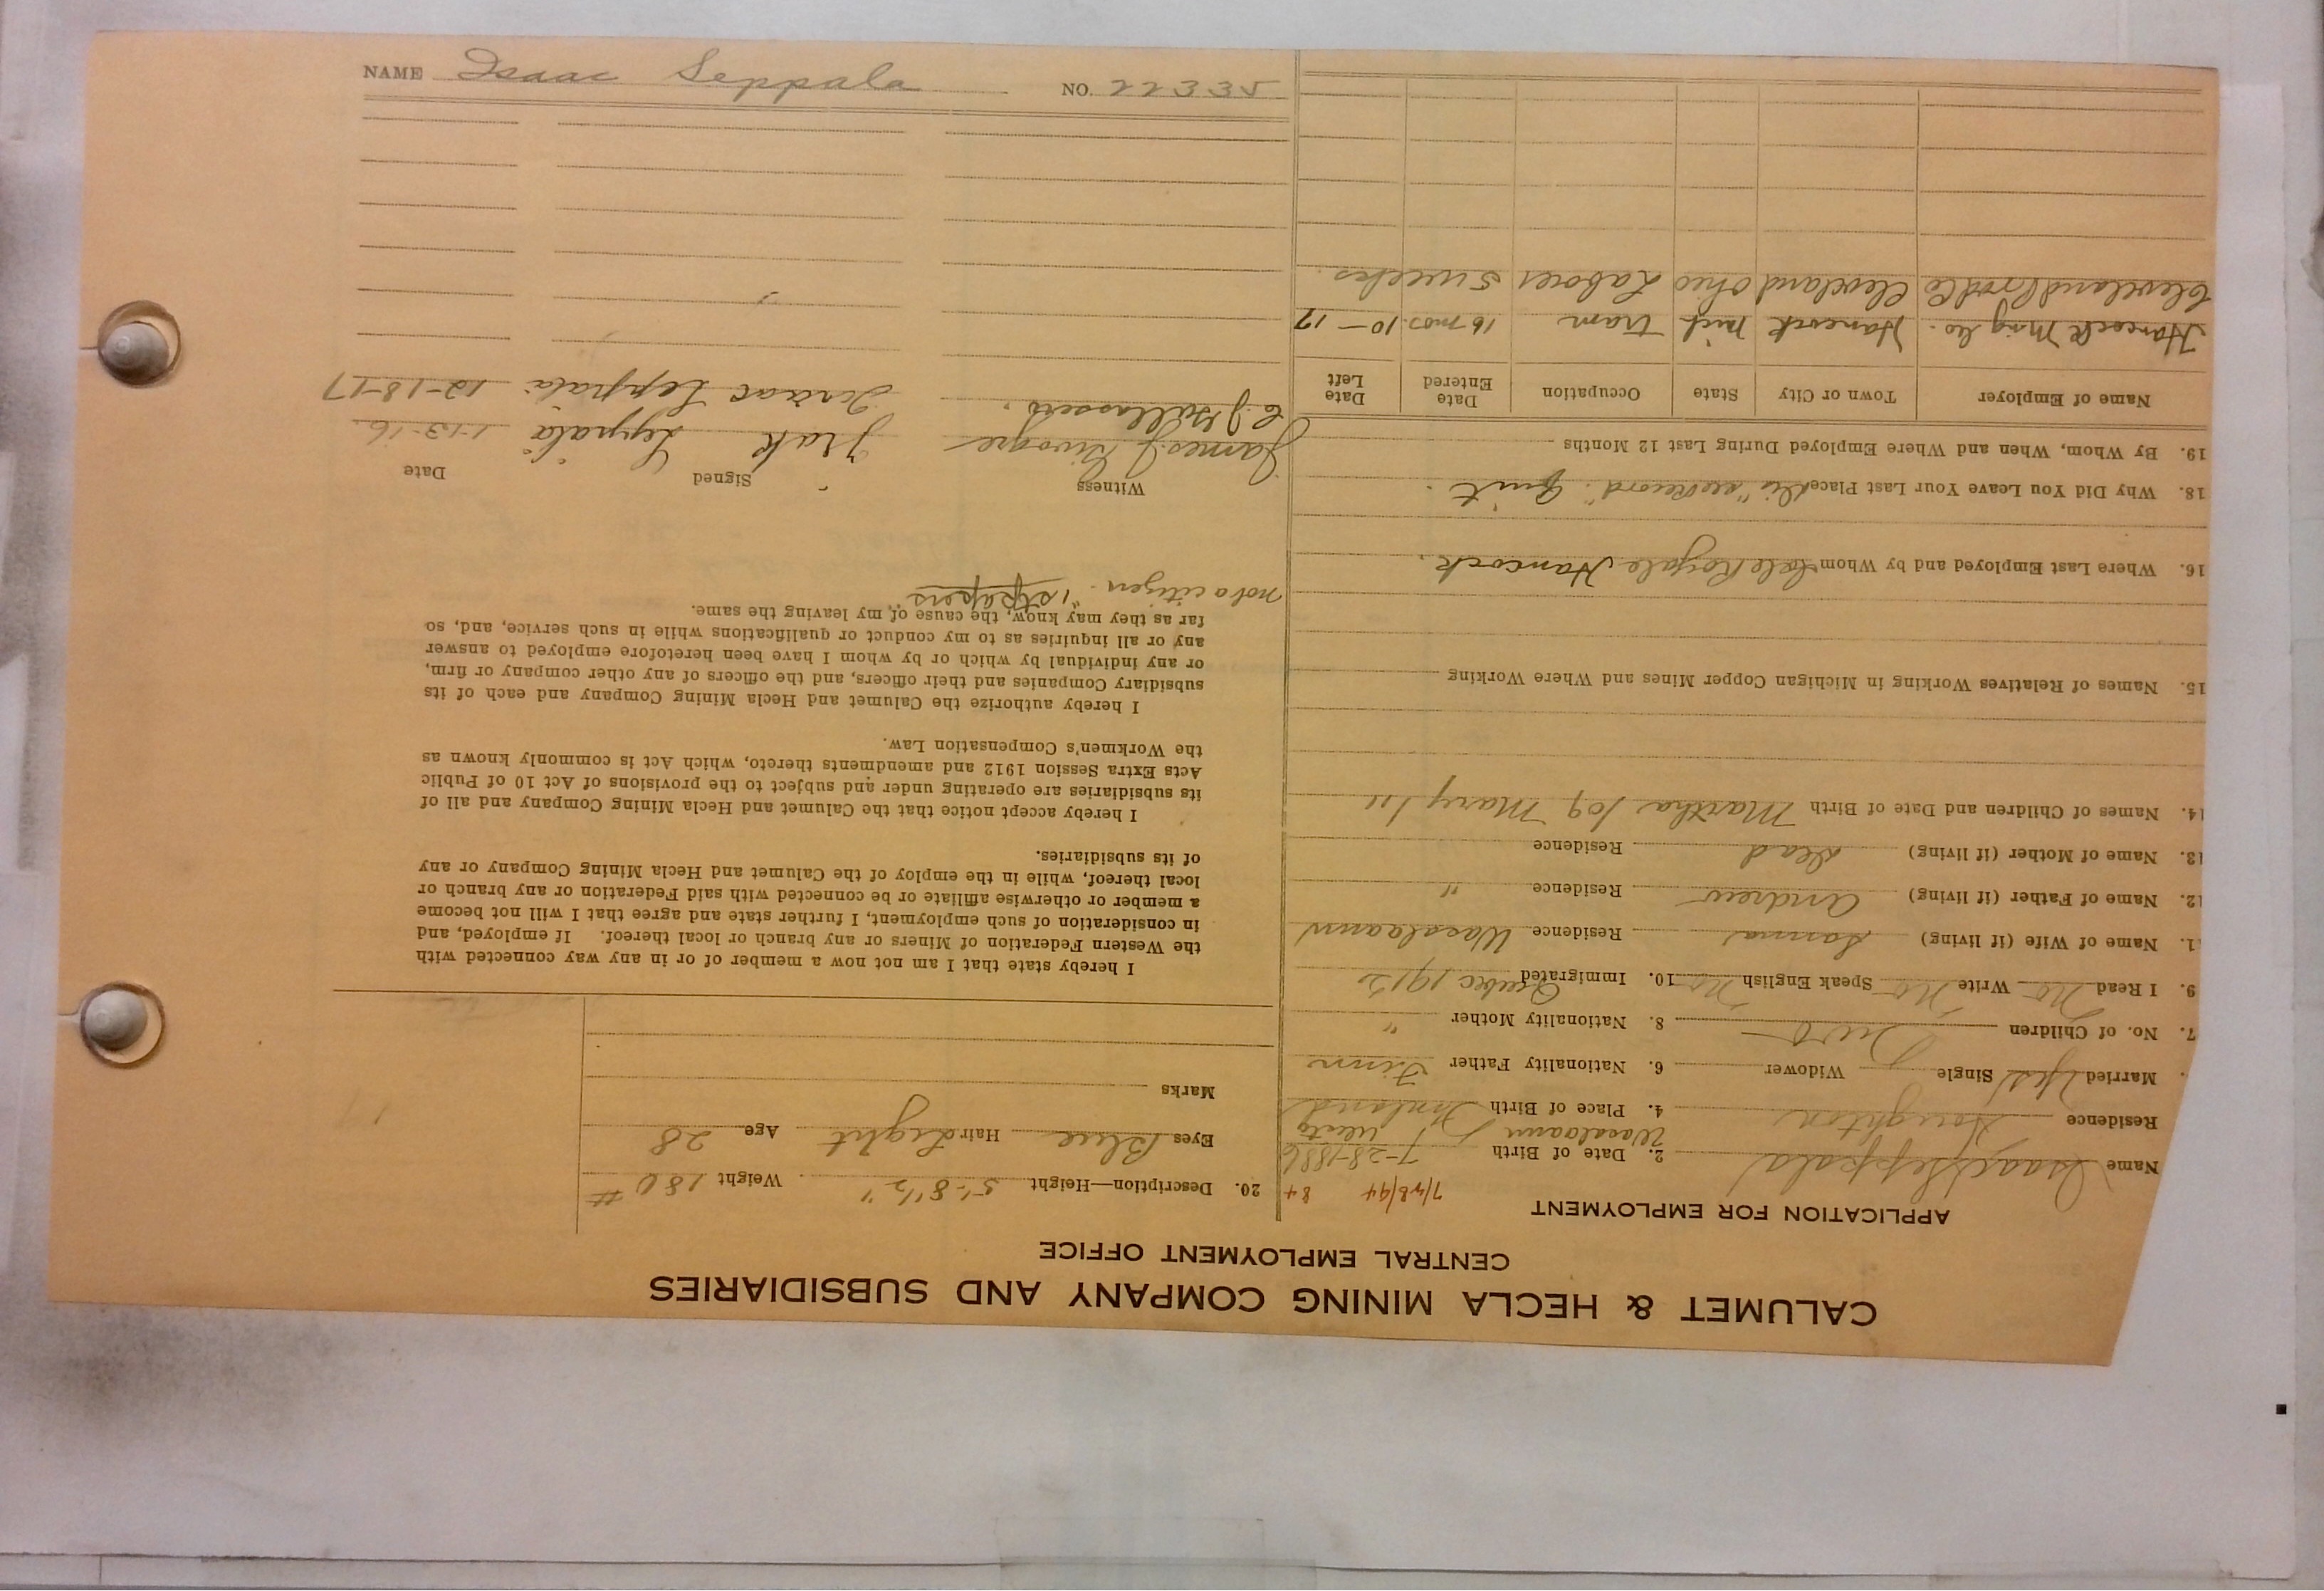 CALUMET & HECLA MINING COMPANY AND SUBSIDIARIES
CENTRAL EMPLOYMENT OFFICE
APPLICATION FOR EMPLOYMENT
Name Isaac Seppala 2. Date of Birth 7-28-1886
Residence Houghton 4. Place of Birth Finland
Married Yes Single Widower 6. Nationality Father Finn
7. No. of Children Two 8. Nationality Mother "
9. I Read No Write No Speak English No 10. Immigrated Quebec 1912
1. Name of Wife (if living) Sanna Residence
12. Name of Father (if living) Andrew Residence "
13. Name of Mother (if living) Dead Residence
14. Names of Children and Date of Birth Martha /09 Mary /11
15. Names of Relatives Working in Michigan Copper Mines and Where Working
16. Where Last Employed and by Whom Isle Royale Hancock.
18. Why Did You Leave Your Last Place "see Record". Quit.
19. By Whom, When and Where Employed During Last 12 Months
Name of Employer Town or City State Occupation Date Entered Date Left
Hancock Ming Co. Hancock Mich tram 16 mos. 10-17
Cleveland Cleveland Ohio Laborer 5 weeks.
20. Description—Height 5'-8½" Weight 180 #
Eyes Blue Hair Light Age 28
Marks
I hereby state that I am not now a member of or in any way connected with
the Western Federation of Miners or any branch or local thereof. If employed, and
in consideration of such employment, I further state and agree that I will not become
a member or otherwise affiliate or be connected with said Federation or any branch or
local thereof, while in the employ of the Calumet and Hecla Mining Company or any
of its subsidiaries.
I hereby accept notice that the Calumet and Hecla Mining Company and all of
its subsidiaries are operating under and subject to the provisions of Act 10 of Public
Acts Extra Session 1912 and amendments thereto, which Act is commonly known as
the Workmen's Compensation Law.
I hereby authorize the Calumet and Hecla Mining Company and each of its
subsidiary Companies and their officers, and the officers of any other company or firm,
or any individual by which or by whom I have been heretofore employed to answer
any or all inquiries as to my conduct or qualifications while in such service, and, so
far as they may know, the cause of my leaving the same.
not a citizen. 1st papers
Witness Signed Date
James J. Isak Seppala 1-13-16.
C J Isaac Seppala 12-18-17
NAME Isaac Seppala NO. 22335